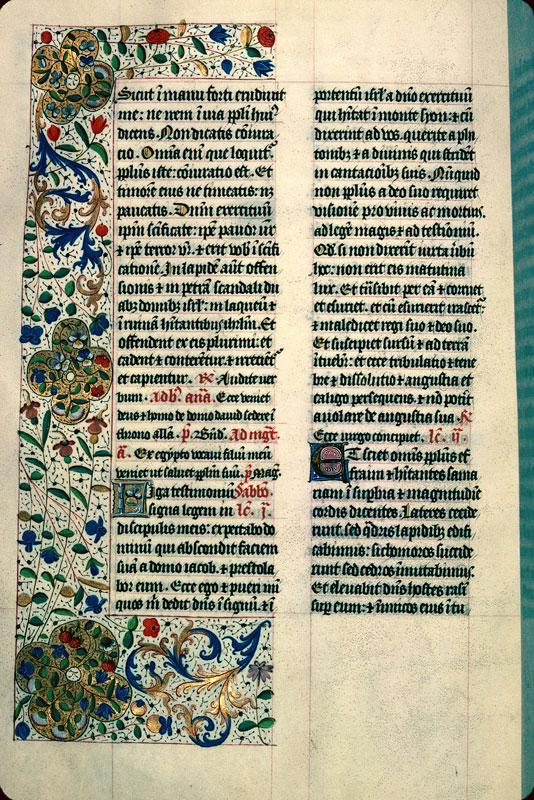 Sicut ī manu forti erudiuit
me: ne irem ī uia ppl̄i hui᾽
dicens. Non dicatis cōiura
cio. Omīa em̄ que loquit᾽
ppl̄us iste: cōiuratio est. Et
timorē eius ne timeatis: nꝫ
paueatis. Dn̄m exercituū
ip̄m sc̄ificate: ip̄e pauor ur̄
⁊ ip̄e terror ur̄. ⁊ erit uob̄ ī sc̄ifi
cationē. In lapidē aūt offen
sionis ⁊ in petrā scandali du
abꝫ domibꝫ isrl̄: in laqueū ⁊
ī ruinā hītantibus ihrl̄m. Et
offendet ex eis plurimi: et
cadent ⁊ conterēt᾽: ⁊ irretiēt᾽
et capientur. R̄. Audite uer
bum. Ad b̄. an̄a. Ecce veniet
deus ⁊ homo de domo dauid sedere ī
throno all̄a. p̄. Bn̄d. Ad mg̅t.
a̅. Ex egypto vocaui filium meū
veniet ut saluet ppl̄m suū. p̄. Mag.
Liga testimoniū Sabb̄o.
signa legem in lc̄. j̄.
discipulis meis: expectabo do
minū qui abscondit faciem
suā a domo iacob. ⁊ prestola
bor eum. Ecce ego ⁊ pueri mei
quos m̄ dedit dn̄s ī signū. ⁊ ī
portentū isrl̄ a dn̄o exercituū
qui hītat ī monte syon: ⁊ cū
dixerint ad vos. querite a phy
tonibꝫ ⁊ a diuinis qui stridēt
in cantacioībꝫ suis. Nūquid
non ppl̄us a deo suo requiret
visionē pro viuis ac mortuis.
ad legē magis ⁊ ad testīoniū.
Qd̄ si non dixerit iuxta ūbū
hoc: non erit eis matutina
lux. Et trāsibit per eā ⁊ corruet
et esuriet. et cū esurierit irascet᾽:
⁊ maledicet regi suo ⁊ deo suo.
Et suscipiet sursū ⁊ ad terrā
ītuebr̄: et ecce tribulatio ⁊ tene
bre ⁊ dissolutio ⁊ angustia et
caligo persequens. ⁊ nō poīt
auolare de angustia sua. R̄.
Ecce uirgo concipiet. lc̄. ij̄.
Et sciet omīs ppl̄us ef
fraim ⁊ hītantes sama
riam ī suꝑbia ⁊ magnitudīe
cordis dicentes. Lateres cecide
runt. sed q̄dris lapidibꝫ edifi
cabimus: sichomoros sucide
runt sed cedros īmutabimus.
Et eleuabit dn̄s hostes rasī
suꝑ eum: ⁊ īimicos eius ī tu